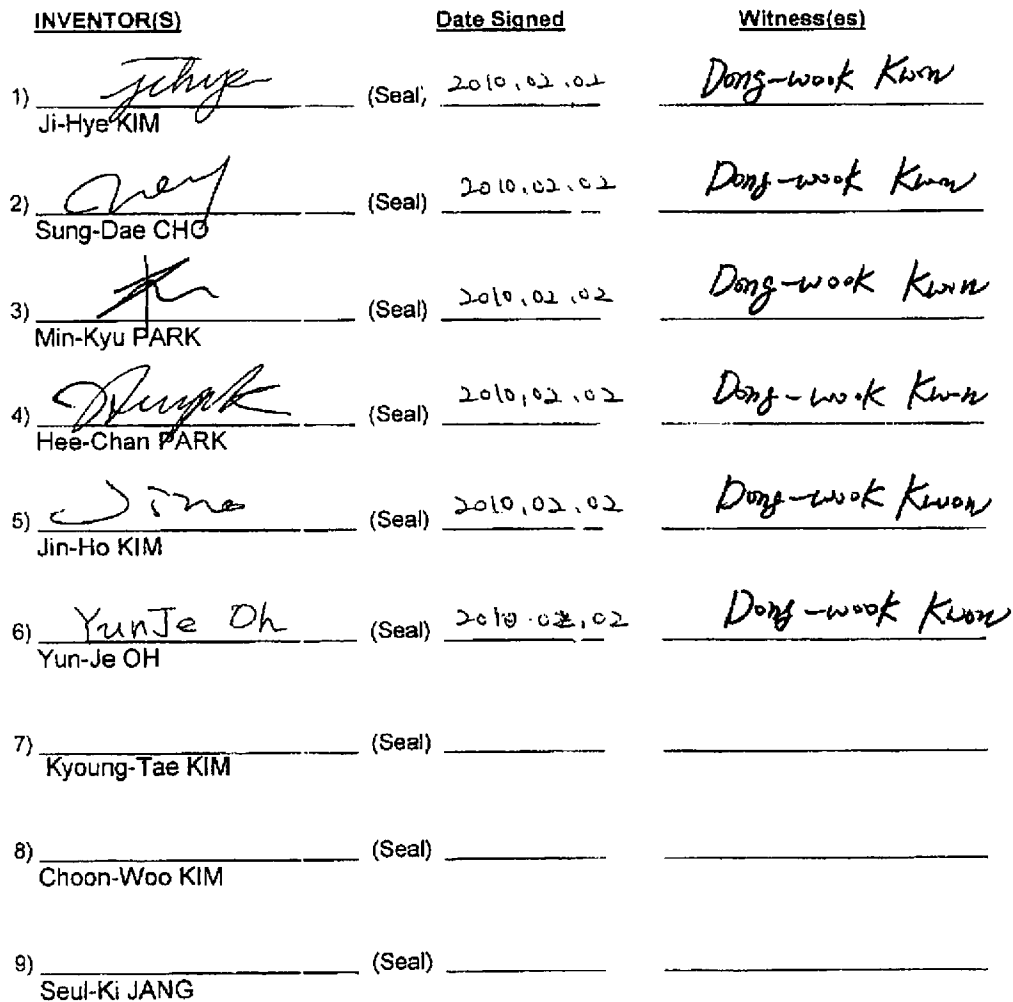 INVENTOR(S) Date Signed Witness(es)
1) jihye (Seal) 2010.02.02 Dong-wook Kwon
Ji-Hye KIM
2) (Seal) 2010.02.02 Dong-wook Kwon
Sung-Dae CHO
3) (Seal) 2010.02.02 Dong-wook Kwon
Min-Kyu PARK
4) (Seal) 2010.02.02 Dong-wook Kwon
Hee-Chan PARK
5) (Seal) 2010.02.02 Dong-wook Kwon
Jin-Ho KIM
6) YunJe Oh (Seal) 2010.02.02 Dong-wook Kwon
Yun-Je OH
7) (Seal)
Kyoung-Tae KIM
8) (Seal)
Choon-Woo KIM
9) (Seal)
Seul-Ki JANG